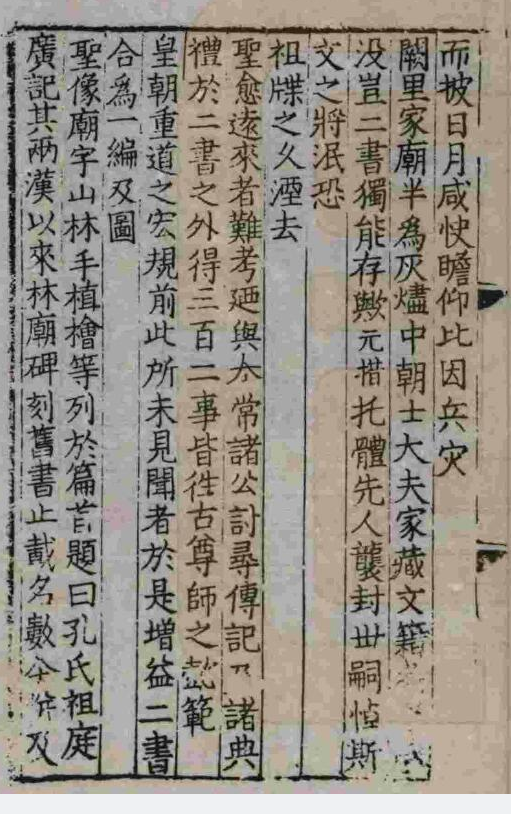 而披日月咸快瞻仰比因兵灾
闕里家廟半為灰燼中朝士大夫家藏文籍
没豈二書獨能存歟元措托體先人襲封世嗣悼斯
文之將泯恐
祖牒之久湮去
聖愈遠來者難考廼與太常諸公討尋傳記及諸典
禮於二書之外得三百二事皆徃古尊師之懿範
皇朝重道之宏規前此所未見聞者於是增益二書
合為一編及圖
聖像廟宇山林手植檜等列於篇首題曰孔氏祖庭
廣記其兩漢以來林廟碑刻舊書止載名數今并及